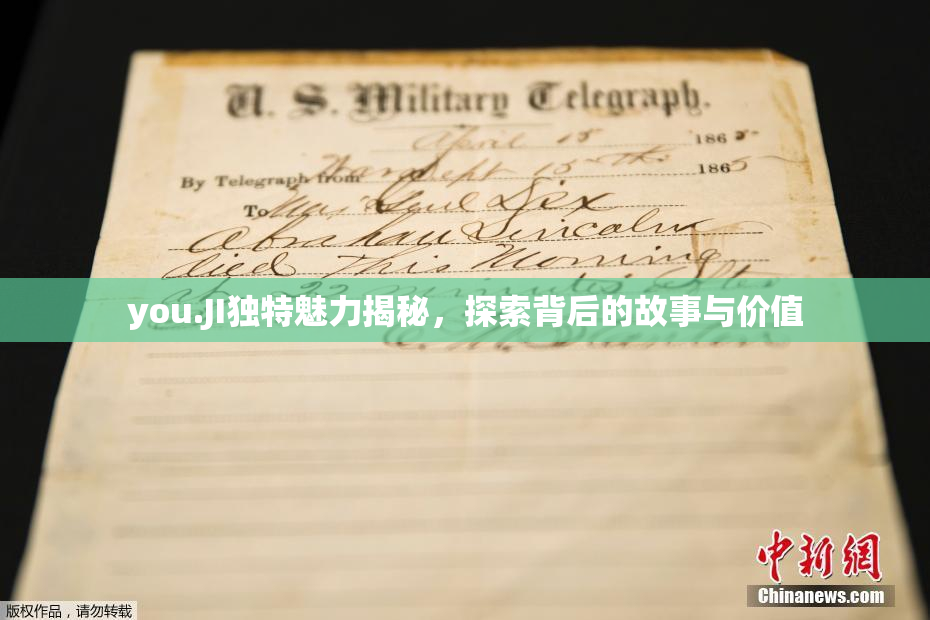 U. S. Military Telegraph.
April 15 1865
By Telegraph from War Dept 15th 1865
To Maj Genl Dix
Abraham Lincoln
died this Morning
22 minutes after
you.JI独特魅力揭秘，探索背后的故事与价值
中新网
Chinanews.com
版权作品，请勿转载